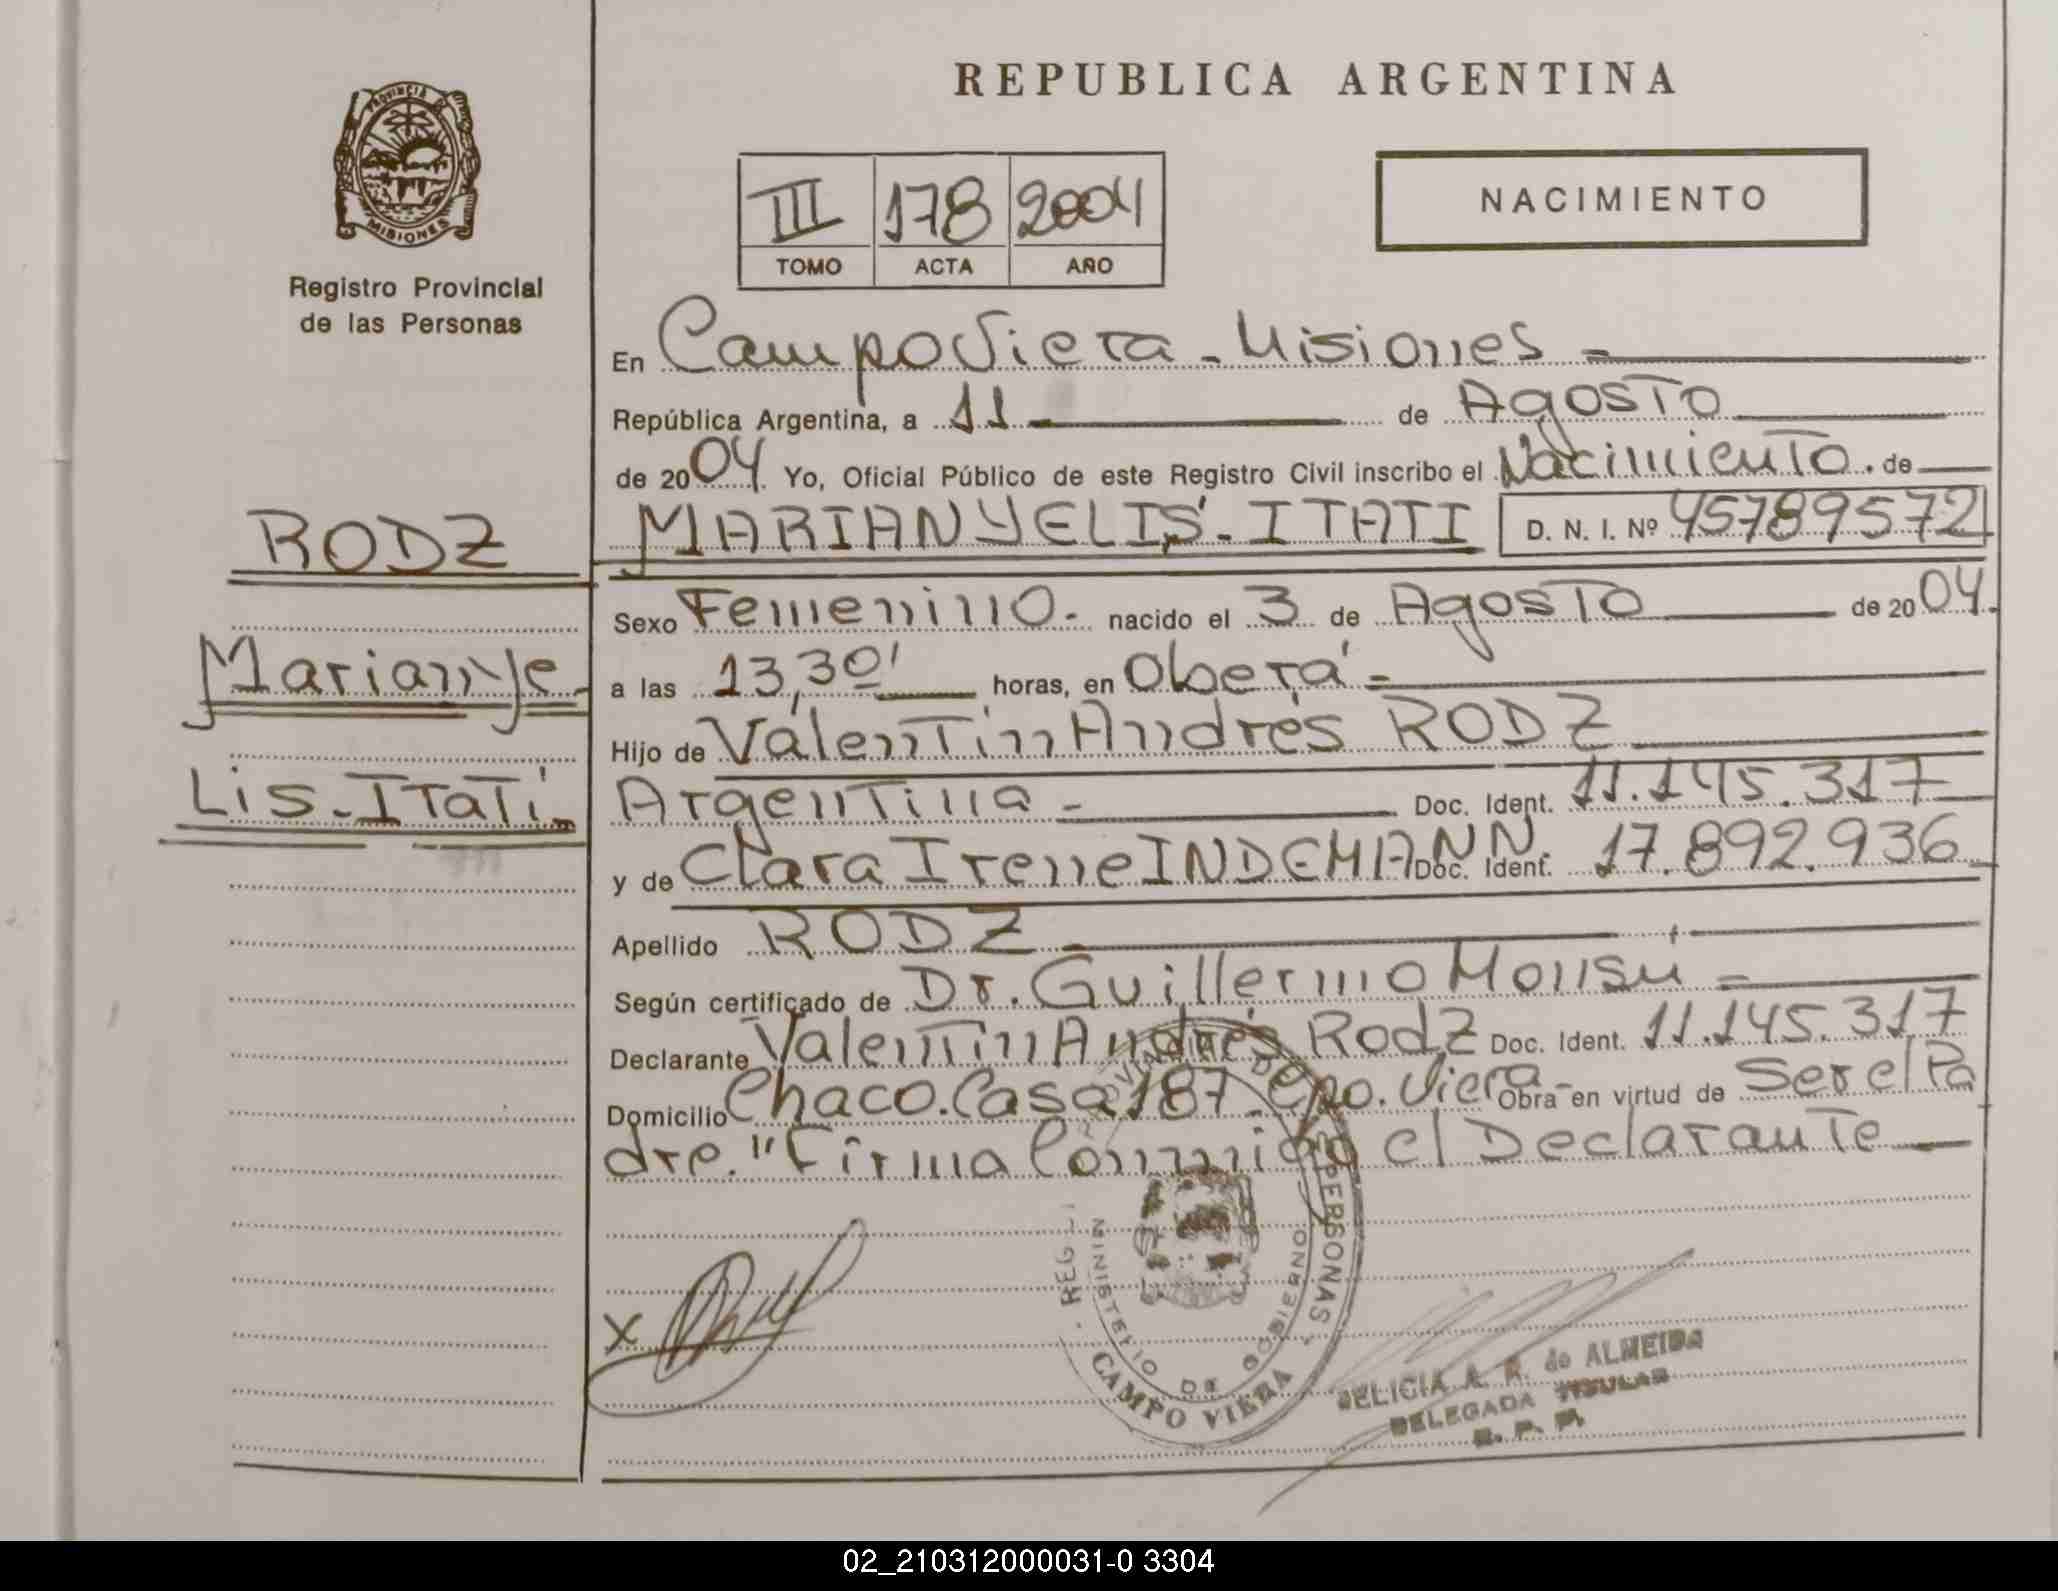 REPUBLICA ARGENTINA
PROVINCIA DE
MISIONES
Registro Provincial
de las Personas
III 178 2004
TOMO ACTA AÑO
NACIMIENTO
En Campo Viera - Misiones -
República Argentina, a 11 de Agosto
de 2004. Yo, Oficial Público de este Registro Civil inscribo el Nacimiento. de
MARIANYELIS - ITATI D. N. I. Nº 45789572
RODZ
Marianye-
Lis - Itatí
Sexo Femenino. nacido el 3 de Agosto de 2004.
a las 13,30' horas, en Oberá -
Hijo de Valentín Andrés RODZ
Argentina - Doc. Ident. 11.145.317
y de Clara Irene INDEMANN. Doc. Ident. 17.892.936
Apellido RODZ
Según certificado de Dr. Guillermo Monsu -
Declarante Valentín Andrés Rodz Doc. Ident. 11.145.317
Domicilio Chaco. Casa 187. Cpo. Viera - Obra en virtud de Ser el Pa
dre. "Firma Conmigo el Declarante
X
PERSONAS
MINISTERIO DE GOBIERNO
CAMPO VIERA
DELICIA A. R. de ALMEIDA
DELEGADA TITULAR
R. P. P.
02_210312000031-0 3304